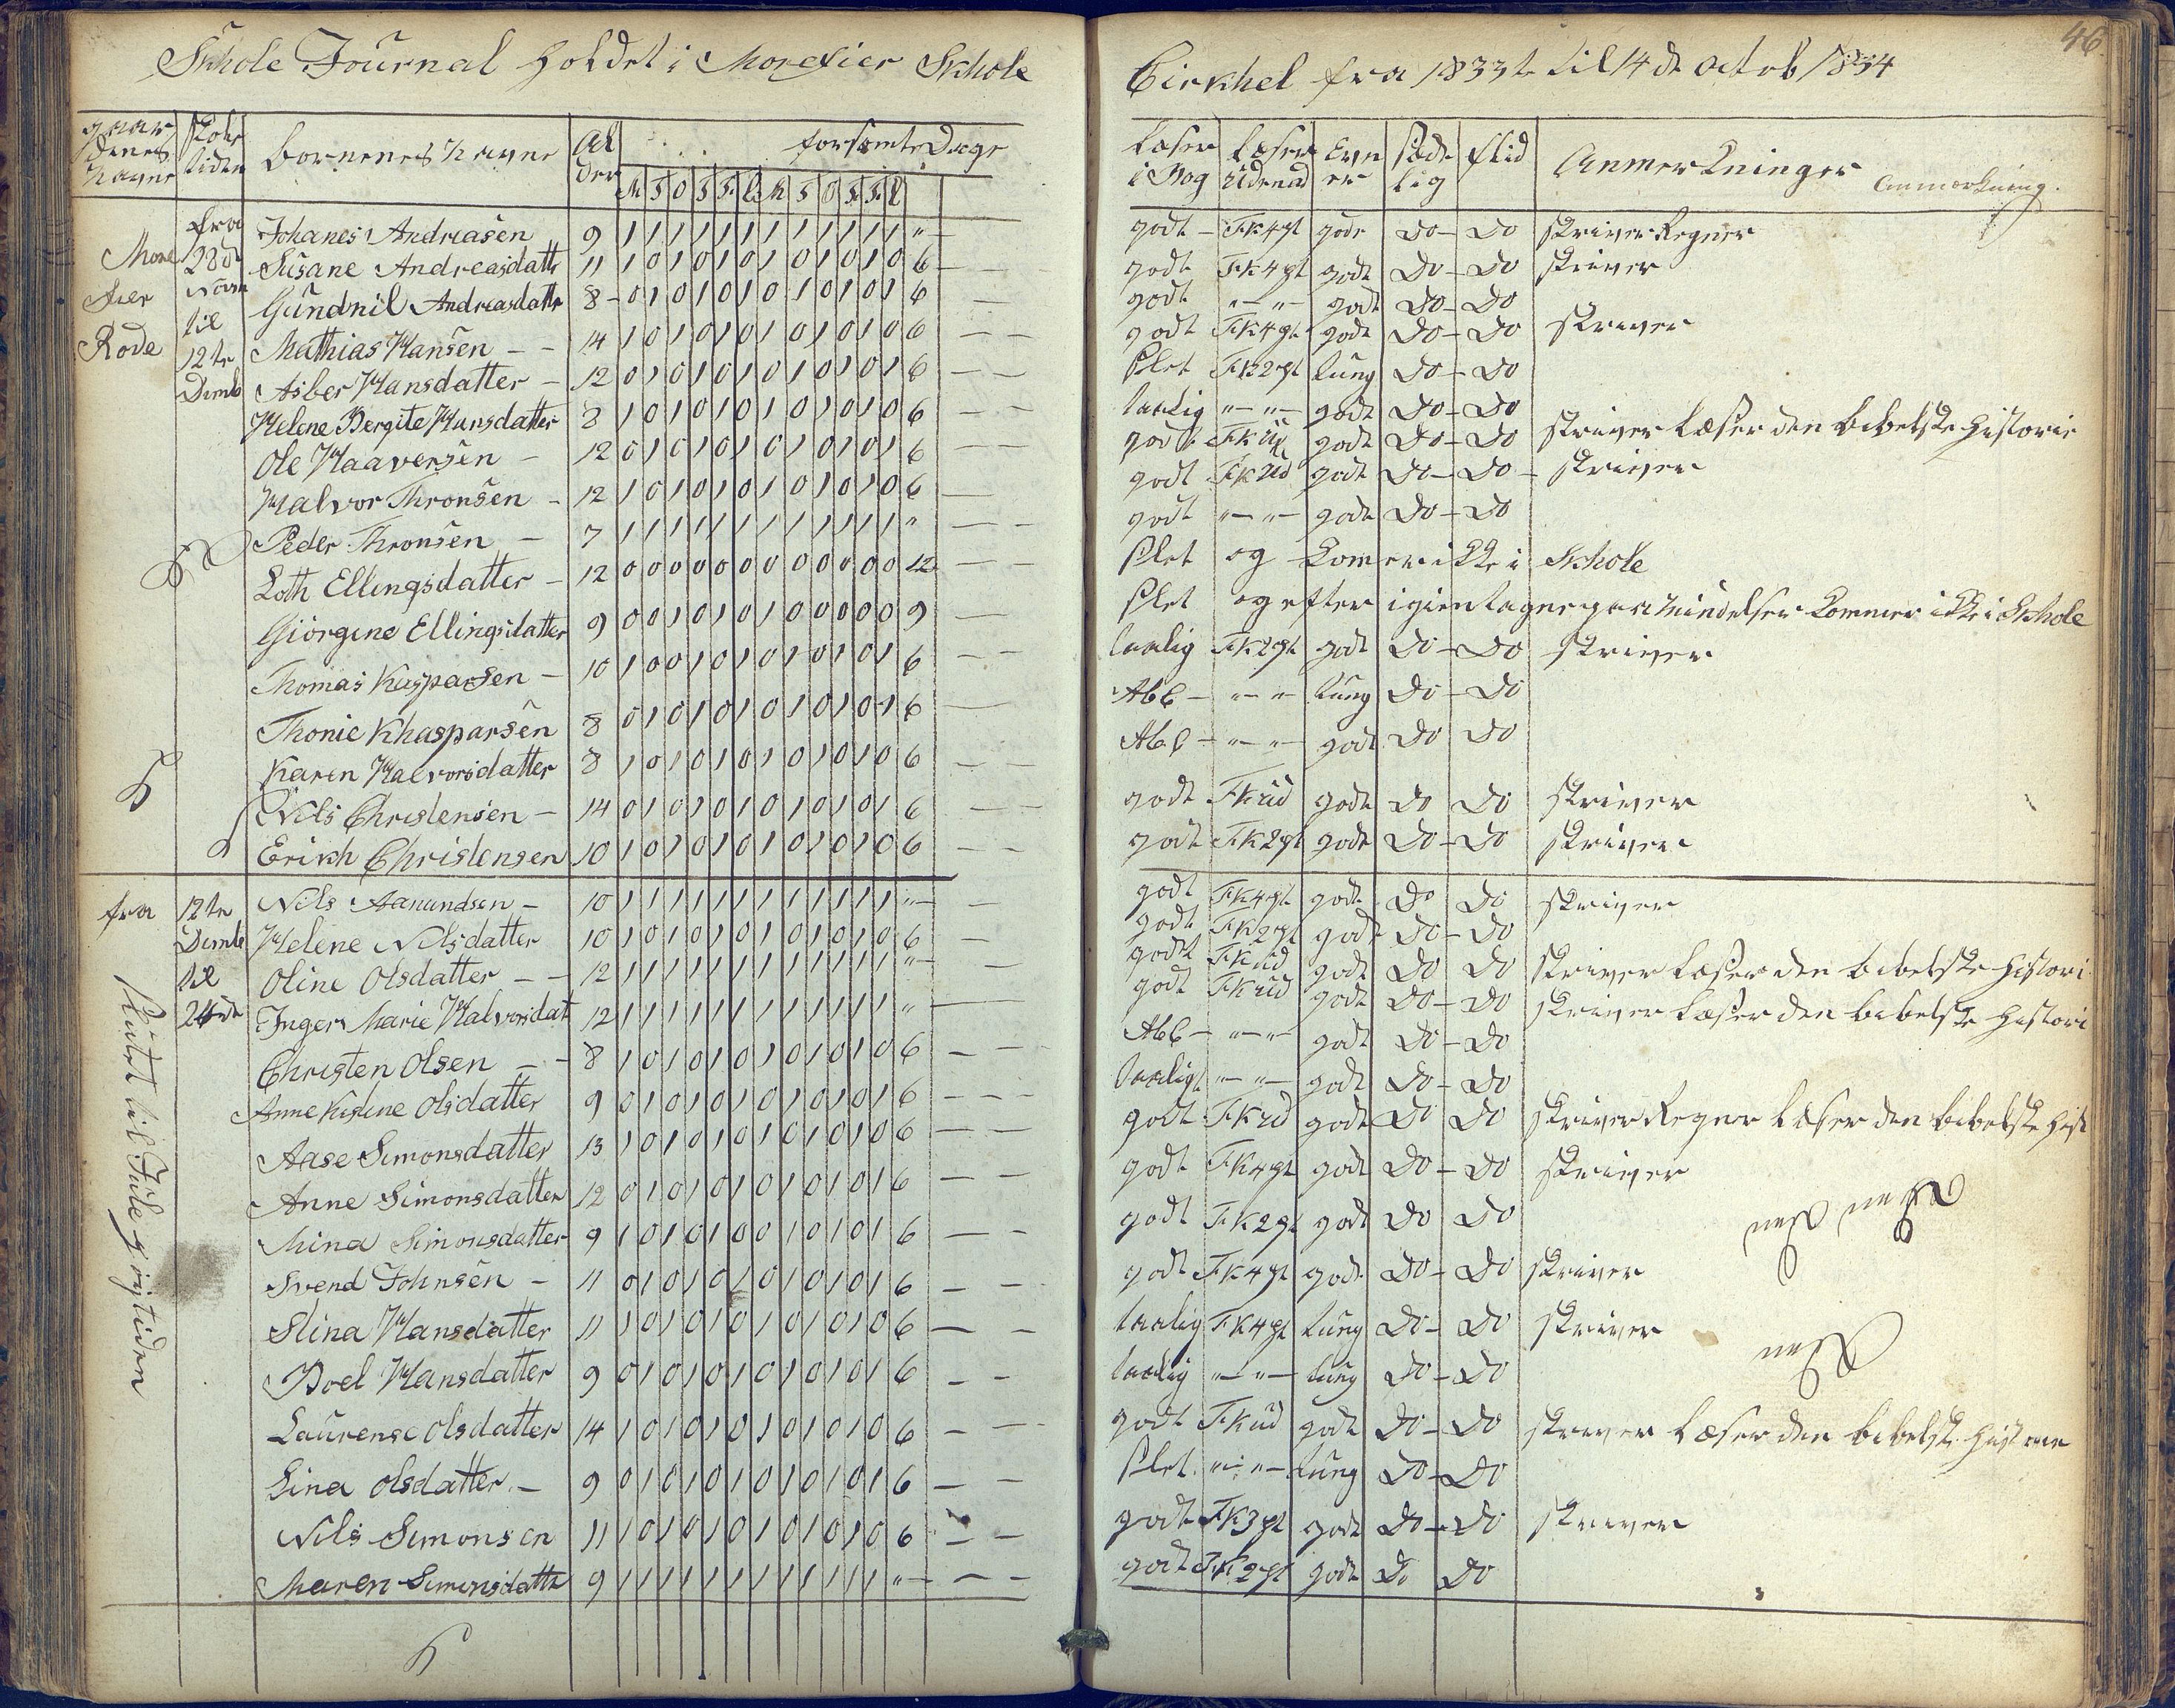 46.
Skhole Journal Holdet i Morefier Skhole Cirkhel fra 1833te til 14de octob 1834
gaardenes Navne Skole tiden Børnenes Navne Alder forsømte Dage læser i Bog læser Udenad Evner sædelig flid Anmerkninger Anmærkning.
M T O T F L M T O T F L
Morefier Rode
fra 28de Novm til 12te Dcmb
Johanes Andreasen 9 1 1 1 1 1 1 1 1 1 1 1 1 " godt FK4pt gode Do Do skriver Regner
Susane Andreasdattr 11 1 0 1 0 1 0 1 0 1 0 1 0 6 godt FK4pt godt Do Do skriver
Gundnil Andreasdattr 8 0 1 0 1 0 1 0 1 0 1 0 1 6 godt " " godt Do Do
Mathias Hansen 14 1 0 1 0 1 0 1 0 1 0 1 0 6 godt FK4pt godt Do Do skriver
Asber Hansdatter 12 0 1 0 1 0 1 0 1 0 1 0 1 6 Slet FK2pt tung Do Do
Helene Bergite Hansdatter 8 1 0 1 0 1 0 1 0 1 0 1 0 6 taalig " " godt Do Do
Ole Haaversen 12 0 1 0 1 0 1 0 1 0 1 0 1 6 godt FK Ud godt Do Do skriver læser den bibelske Historie
Halvor Thronsen 12 1 0 1 0 1 0 1 0 1 0 1 0 6 godt FK Ud godt Do Do skriver
Peder Thronsen 7 1 1 1 1 1 1 1 1 1 1 1 1 " godt " " godt Do Do
Loth Ellingsdatter 12 0 0 0 0 0 0 0 0 0 0 0 0 12 Slet og komer ikke i Skhole
Giorgine Ellingsdatter 9 0 0 1 0 1 0 1 0 0 0 0 0 9 Slet og efter igientagne paamindelser kommer ikke i Skhole
Thomas Kasparsen 10 1 0 0 1 0 1 0 1 0 1 0 1 6 taalig FK2pt godt Do Do skriver
Thonie Khasparsen 8 0 1 0 1 0 1 0 1 0 1 0 1 6 Abc " " tung Do Do
Karen Halvorsdatter 8 1 0 1 0 1 0 1 0 1 0 1 0 6 Abc " " godt Do Do
Nils Christensen 14 0 1 0 1 0 1 0 1 0 1 0 1 6 godt FK ud godt Do Do skriver
Erikh Christensen 10 1 0 1 0 1 0 1 0 1 0 1 0 6 godt FK2pt godt Do Do skriver
fra 12te Dcmb til 24de
Sluttet til Jule høitiden
Nils Aanundsen 10 1 1 1 1 1 1 1 1 1 1 1 1 " godt FK4pt godt Do Do skriver
Helene Nilsdatter 10 1 0 1 0 1 0 1 0 1 0 1 0 6 godt FK2pt godt Do Do
Oline Olsdatter 12 1 1 1 1 1 1 1 1 1 1 1 1 " godt FK ud godt Do Do skriver læser den bibelske Histori
Inger Marie Halvorsdat 12 1 1 1 1 1 1 1 1 1 1 1 1 " godt FK ud godt Do Do skriver læser den bibelske Histori
Christen Olsen 8 1 0 1 0 1 0 1 0 1 0 1 0 6 Abc " " godt Do Do
Anne Kistine Olsdatter 9 0 1 0 1 0 1 0 1 0 1 0 1 6 taalig " " godt Do Do
Aase Simonsdatter 13 1 0 1 0 1 0 1 0 1 0 1 0 6 godt FK ud godt Do Do skriver Regner læser den bibelske Hist
Anne Simonsdatter 12 0 1 0 1 0 1 0 1 0 1 0 1 6 godt FK4pt godt Do Do skriver
Mina Simonsdatter 9 1 0 1 0 1 0 0 1 0 1 0 1 6 godt FK2pt godt Do Do
Svend Johnsen 11 0 1 0 1 0 1 0 1 0 1 0 1 6 godt FK4pt godt Do Do skriver
Stina Hansdatter 11 1 0 1 0 1 0 1 0 1 0 1 0 6 taalig FK4pt tung Do Do skriver
Boel Hansdatter 9 0 1 0 1 0 1 0 1 0 1 0 1 6 taalig " " tung Do Do
Laurense Olsdatter 14 1 0 1 0 1 0 1 0 1 0 1 0 6 godt FK ud godt Do Do skriver læser den bibelsk Historie
Lina Olsdatter 9 0 1 0 1 0 1 0 1 0 1 0 1 6 Slet " " tung Do Do
Nils Simonsen 11 1 0 1 0 1 0 1 0 1 0 1 0 6 godt FK3pt godt Do Do skriver
Maren Simonsdattr 9 1 1 1 1 1 1 1 1 1 1 1 1 " godt FK2pt godt Do Do